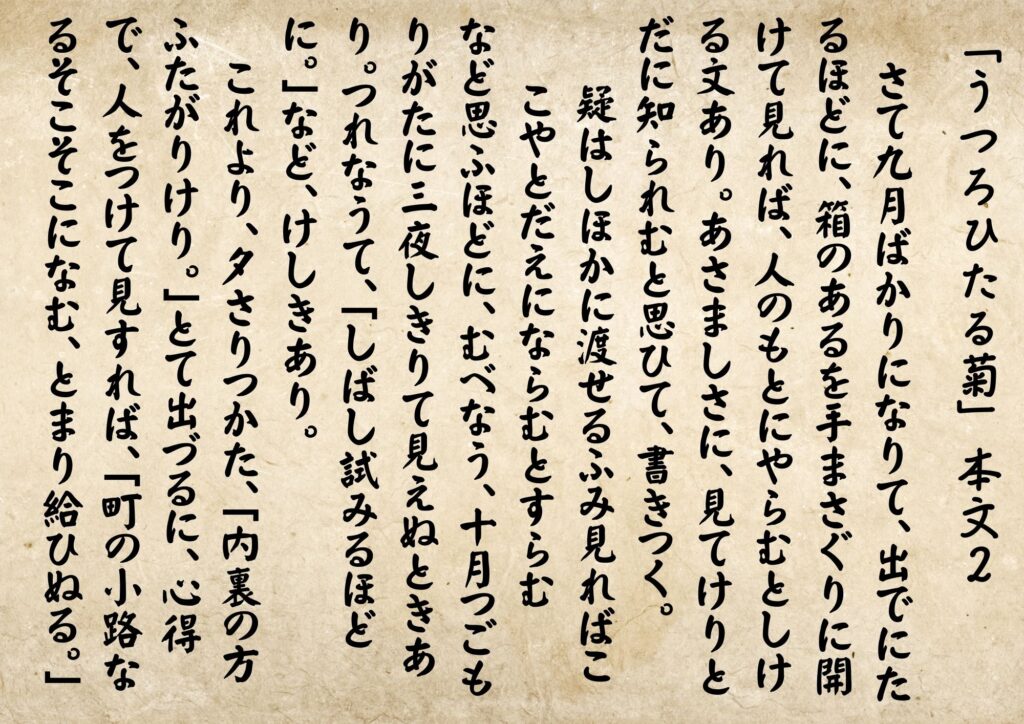 「うつろひたる菊」 本文２
さて九月ばかりになりて、出でにた
るほどに、箱のあるを手まさぐりに開
けて見れば、人のもとにやらむとしけ
る文あり。あさましさに、見てけりと
だに知られむと思ひて、書きつく。
疑はしほかに渡せるふみ見ればこ
こやとだえにならむとすらむ
など思ふほどに、むべなう、十月つごも
りがたに三夜しきりて見えぬときあ
り。つれなうて、「しばし試みるほど
に。」など、けしきあり。
これより、夕さりつかた、「内裏の方
ふたがりけり。」とて出づるに、心得
で、人をつけて見すれば、「町の小路な
るそこそこになむ、とまり給ひぬる。」